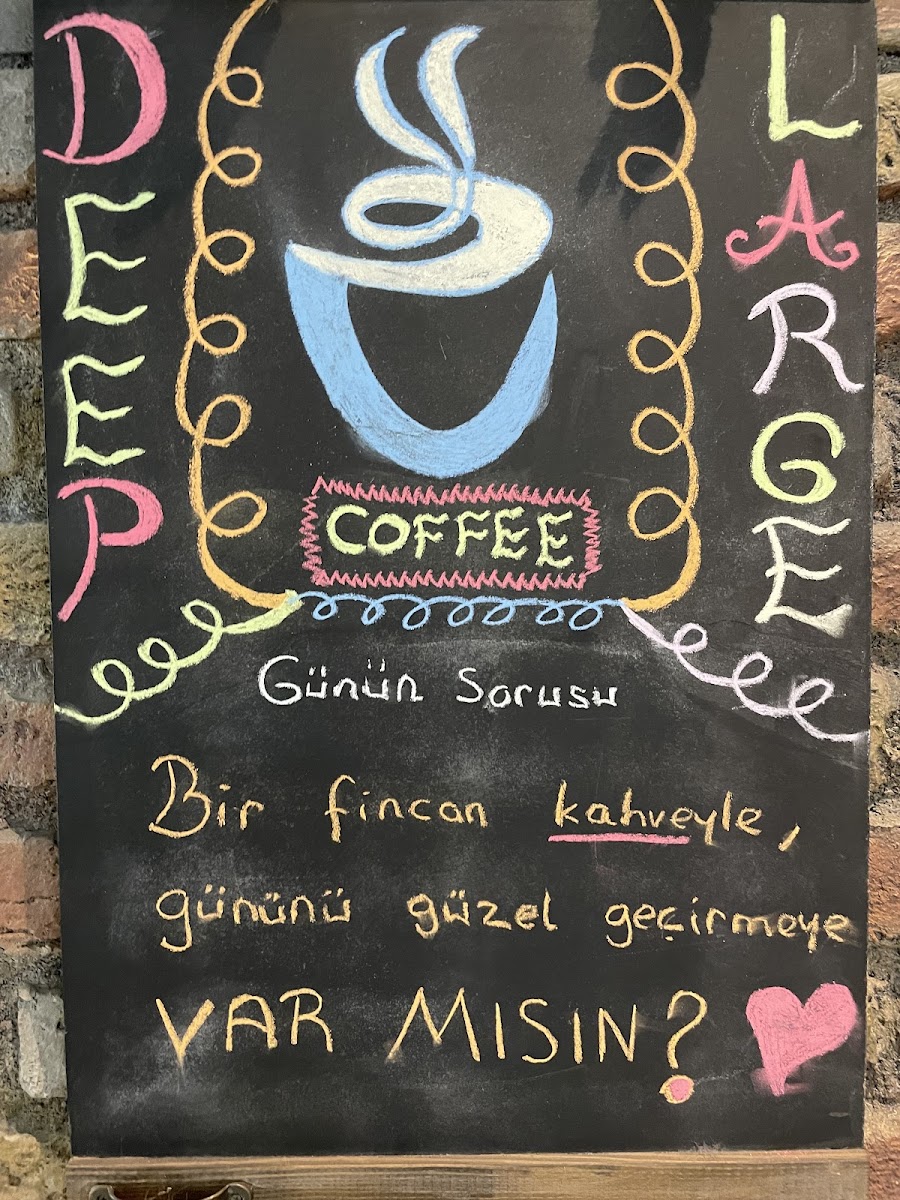 DEEP
LARGE
COFFEE
Günün Sorusu
Bir fincan kahveyle,
gününü güzel geçirmeye
VAR MISIN?